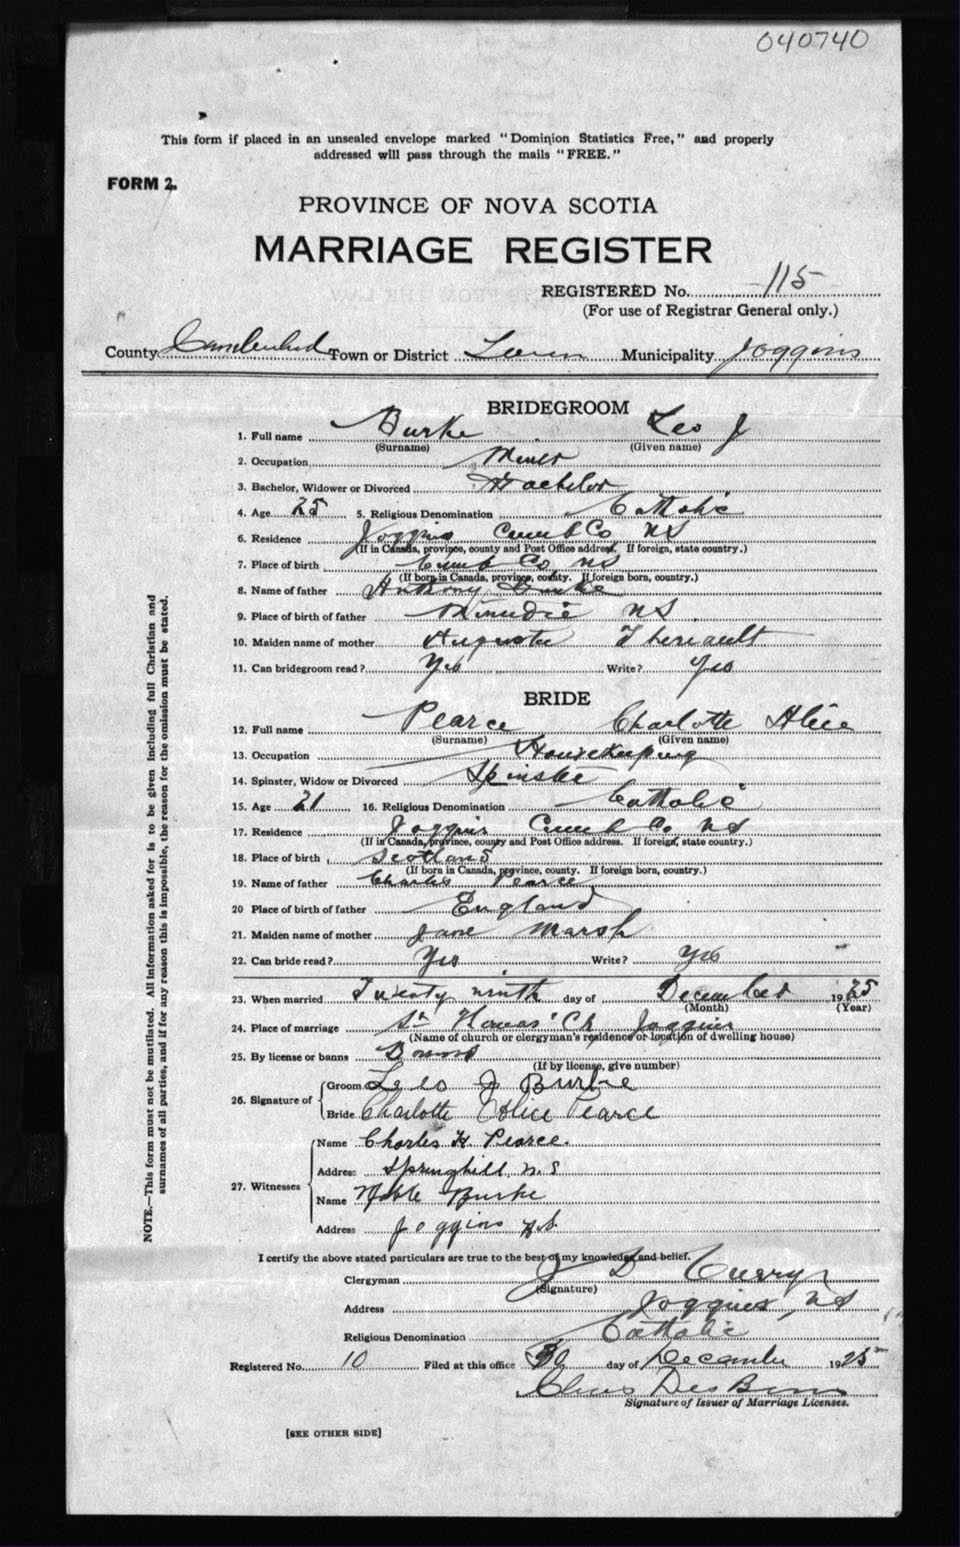 040740
This form if placed in an unsealed envelope marked "Dominion Statistics Free," and properly
addressed will pass through the mails "FREE."
FORM 2.
PROVINCE OF NOVA SCOTIA
MARRIAGE REGISTER
REGISTERED No. 115
(For use of Registrar General only.)
County Cumberland Town or District Municipality Joggins
BRIDEGROOM
1. Full name Burke Leo J
(Surname) (Given name)
2. Occupation Miner
3. Bachelor, Widower or Divorced Bachelor
4. Age 25 5. Religious Denomination Catholic
6. Residence Joggins Cumb Co NS
(If in Canada, province, county and Post Office address. If foreign, state country.)
7. Place of birth Cumb Co NS
(If born in Canada, province, county. If foreign born, country.)
8. Name of father Anthony Burke
9. Place of birth of father Minudie NS
10. Maiden name of mother Augusta Theriault
11. Can bridegroom read? Yes Write? Yes
BRIDE
12. Full name Pearce Charlotte Alice
(Surname) (Given name)
13. Occupation Housekeeping
14. Spinster, Widow or Divorced Spinster
15. Age 21 16. Religious Denomination Catholic
17. Residence Joggins Cumb Co NS
(If in Canada, province, county and Post Office address. If foreign, state country.)
18. Place of birth Scotland
(If born in Canada, province, county. If foreign born, country.)
19. Name of father Charles Pearce
20 Place of birth of father England
21. Maiden name of mother Jane Marsh
22. Can bride read? Yes Write? Yes
23. When married Twenty ninth day of December 1925
(Month) (Year)
24. Place of marriage St Ch Joggins
(Name of church or clergyman's residence or location of dwelling house)
25. By license or banns Banns
(If by license, give number)
26. Signature of
Groom Leo J Burke
Bride Charlotte Alice Pearce
27. Witnesses
Name Charles H Pearce.
Address Springhill N.S
Name Burke
Address Joggins N.S.
I certify the above stated particulars are true to the best of my knowledge and belief.
Clergyman J D Curry
(Signature)
Address Joggins, NS
Religious Denomination Catholic
Registered No. 10 Filed at this office 30 day of December 1925
Chas DesBarres
Signature of Issuer of Marriage Licenses.
[SEE OTHER SIDE]
NOTE.—This form must not be mutilated. All information asked for is to be given including full Christian and
surnames of all parties, and if for any reason this is impossible, the reason for the omission must be stated.